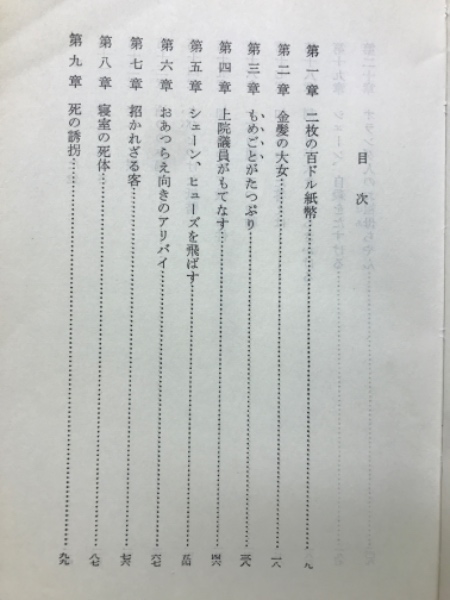 目次
第一章 二枚の百ドル紙幣 九
第二章 金髪の大女 一八
第三章 もめごとがたっぷり 三八
第四章 上院議員がもてなす 四六
第五章 シェーン、ヒューズを飛ばす 五四
第六章 おあつらえ向きのアリバイ 六七
第七章 招かれざる客 七六
第八章 寝室の死体 八七
第九章 死の誘拐 九九